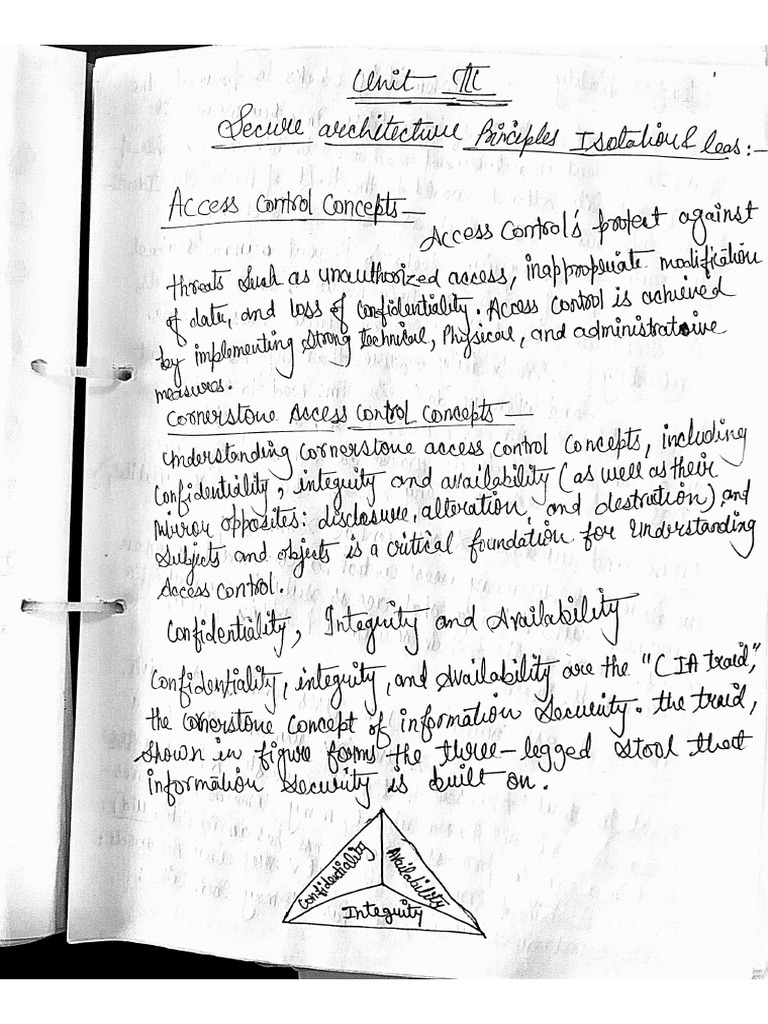 Unit III
Secure architecture Principles Isolation & leas:-
Access Control Concepts –
Access Control's protect against
threats such as unauthorized access, inappropriate modification
of data, and loss of confidentiality. Access Control is achieved
by implementing strong technical, Physical, and administrative
measures.
Cornerstone Access Control Concepts –
Understanding cornerstone access control concepts, including
confidentiality, integrity and availability (as well as their
mirror opposites: disclosure, alteration, and destrution) and
subjects and objects is a critical foundation for understanding
access control.
Confidentiality, Integrity and Availability
Confidentiality, integrity, and availability are the "CIA traid,"
the cornerstone concept of information security. the traid,
shown in figure forms the three-legged stool that
information security is built on.
Confidentiality
Availability
Integrity